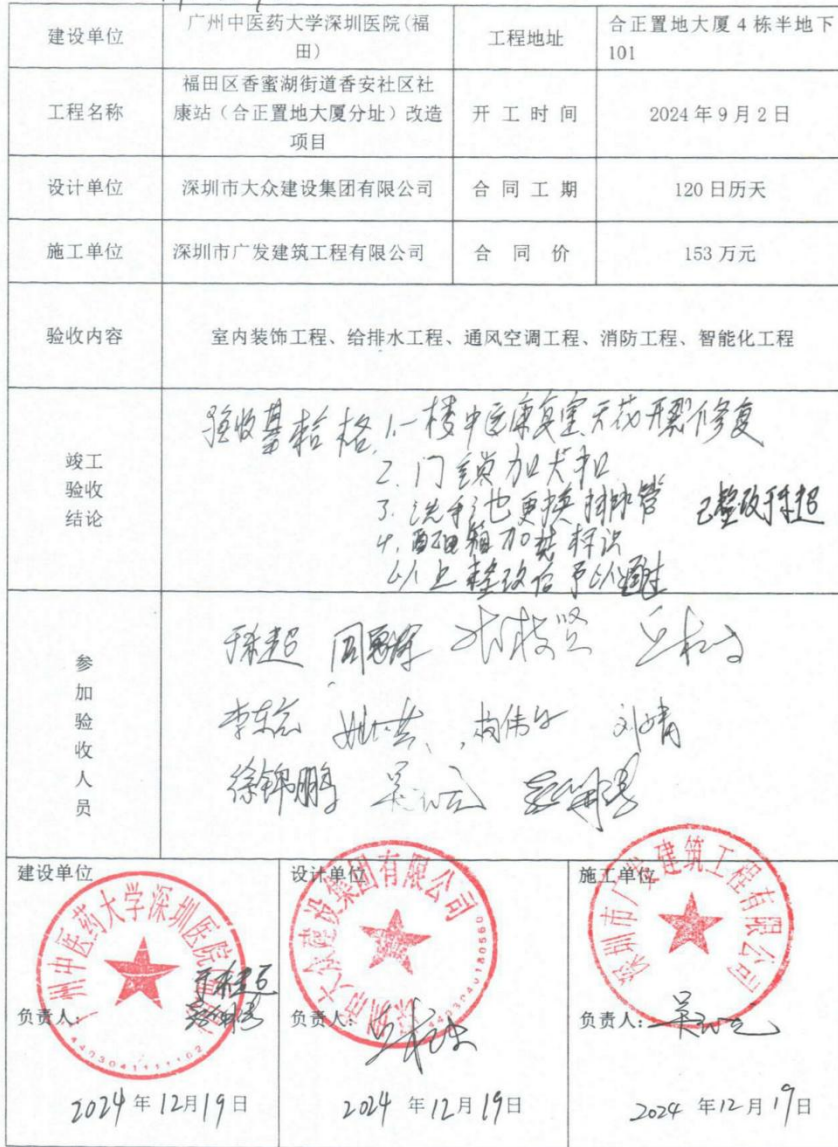 建设单位
广州中医药大学深圳医院(福
田)
工程地址
合正置地大厦 4 栋半地下
101
工程名称
福田区香蜜湖街道香安社区社
康站（合正置地大厦分址）改造
项目
开工时间
2024 年 9 月 2 日
设计单位
深圳市大众建设集团有限公司
合同工期
120 日历天
施工单位
深圳市广发建筑工程有限公司
合同价
153 万元
验收内容
室内装饰工程、给排水工程、通风空调工程、消防工程、智能化工程
竣工
验收
结论
验收基本合格 1.一楼中医康复室天花开裂修复
2.门锁加大扣
3.洗手池更换排水管
已整改
4.配电箱加装标识
以上整改后予以通过
参
加
验
收
人
员
刘晴
徐锦鹏
建设单位
广州中医药大学深圳医院
4403041111102
负责人:
2024 年 12 月 19 日
设计单位
深圳市大众建设集团有限公司
4403040180560
负责人:
2024 年 12 月 19 日
施工单位
深圳市广发建筑工程有限公司
负责人:
2024 年 12 月 19 日